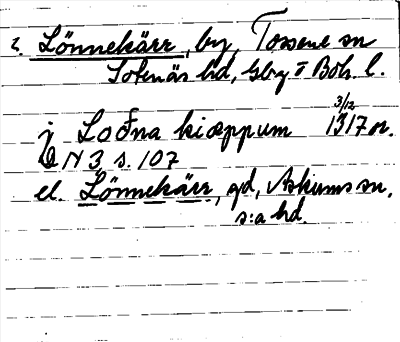 2. Lönnekärr, by, Tossene sn
Sotenäs hd, Gbg o Boh. l.
j Loðna kiœppum 3/12 1317 or.
DN 3 s. 107
el. Lönnekärr, gd, Askums sn,
s:a hd.